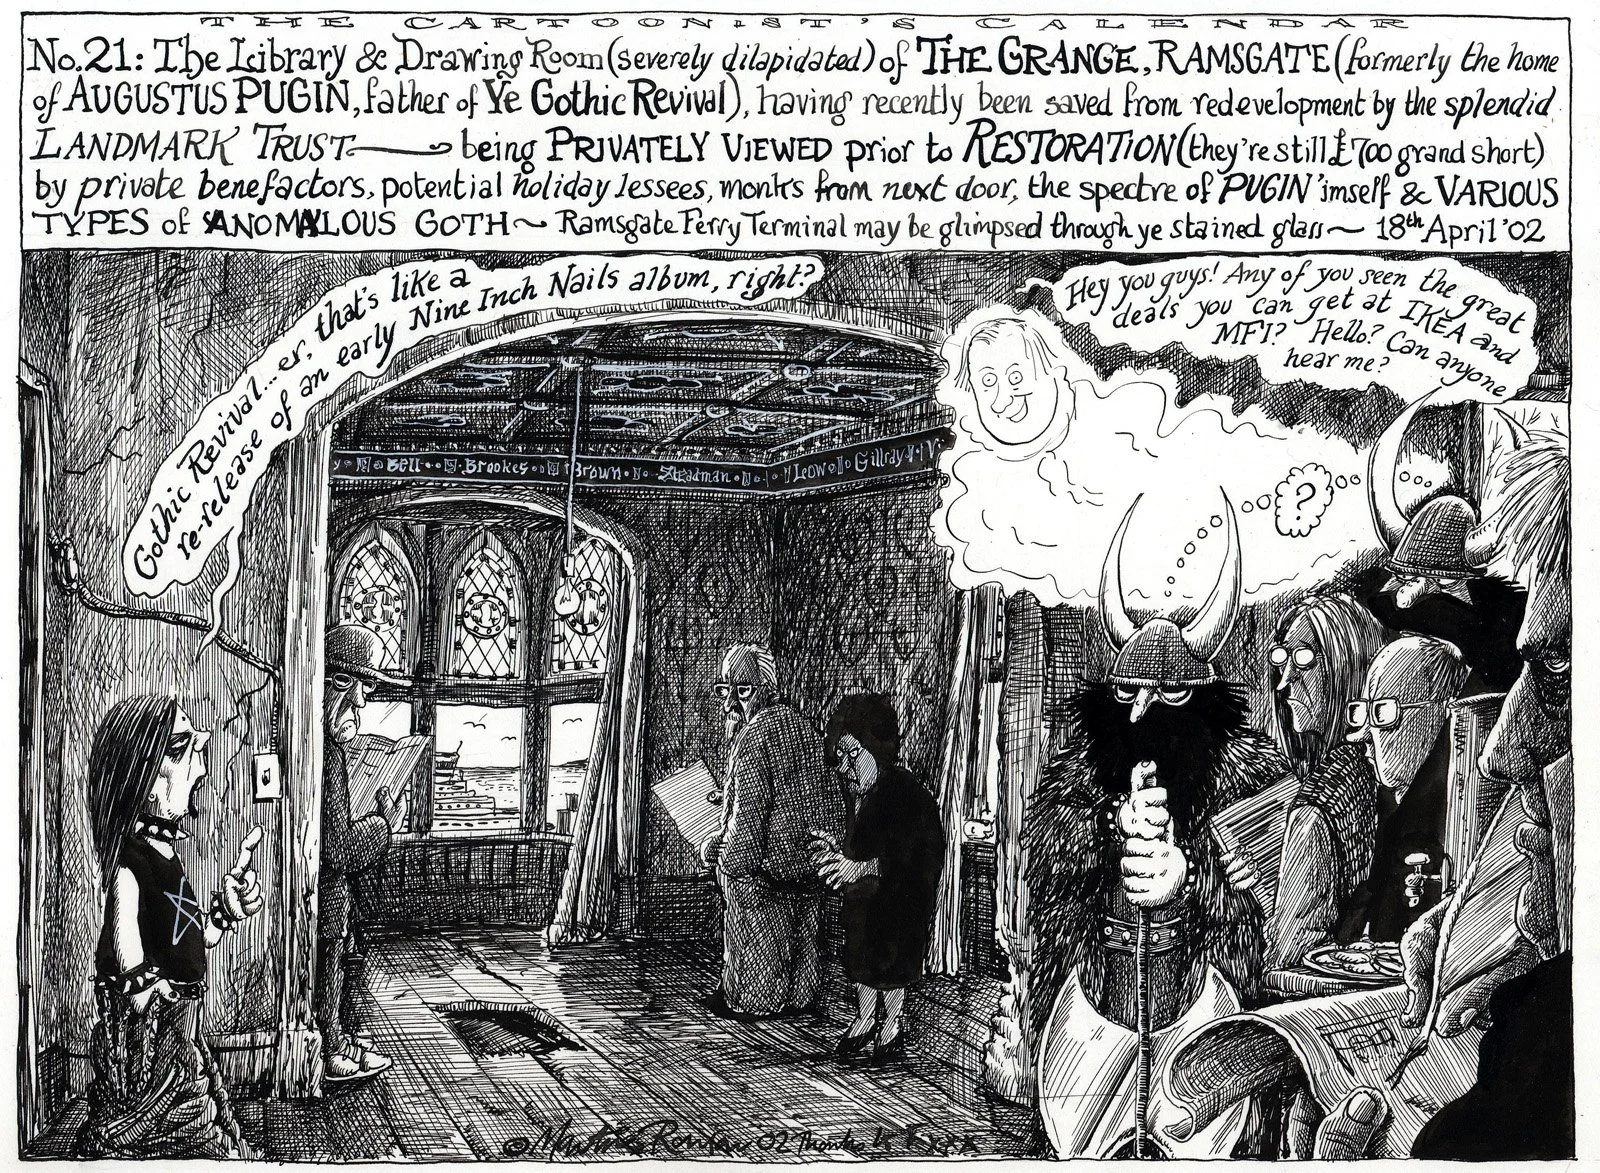 THE CARTOONIST'S CALENDAR
No.21: The Library & Drawing Room (severely dilapidated) of THE GRANGE, RAMSGATE (formerly the home
of AUGUSTUS PUGIN, father of Ye Gothic Revival), having recently been saved from redevelopment by the splendid
LANDMARK TRUST — being PRIVATELY VIEWED prior to RESTORATION (they're still £700 grand short)
by private benefactors, potential holiday lessees, monks from next door, the spectre of PUGIN 'imself & VARIOUS
TYPES of ANOMALOUS GOTH ~ Ramsgate Ferry Terminal may be glimpsed through ye stained glass ~ 18th April '02
Gothic Revival... er, that's like a
re-release of an early Nine Inch Nails album, right?
Hey you guys! Any of you seen the great
deals you can get at IKEA and
MFI? Hello? Can anyone
hear me?
?
Bell Brookes Brown Steadman Low Gillray
© Martin Rowson '02 Thanks to